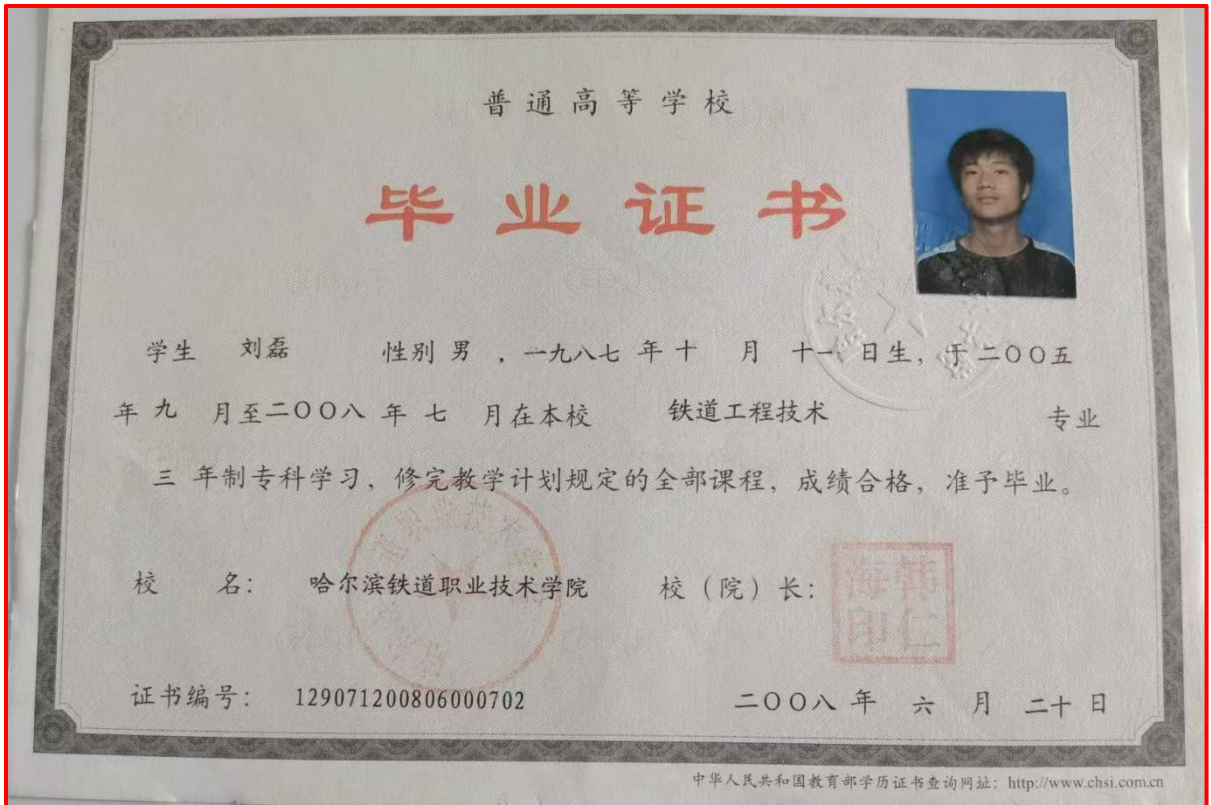 普通高等学校
毕业证书
学生 刘磊 性别 男 ,一九八七 年 十 月 十一 日生,于二〇〇五
年 九 月至二〇〇八 年 七 月在本校 铁道工程技术 专业
三 年制专科学习,修完教学计划规定的全部课程,成绩合格,准予毕业。
校 名: 哈尔滨铁道职业技术学院 校(院)长:
韩仁海印
证书编号: 129071200806000702 二〇〇八 年 六 月 二十 日
中华人民共和国教育部学历证书查询网址:http://www.chsi.com.cn